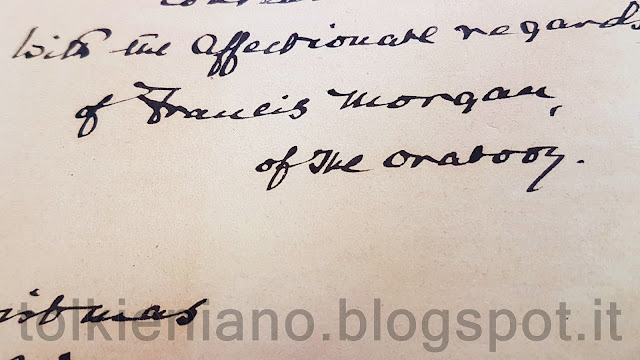 with the affectionate regards
of Francis Morgan,
of The Oratory.
tolkieniano.blogspot.it